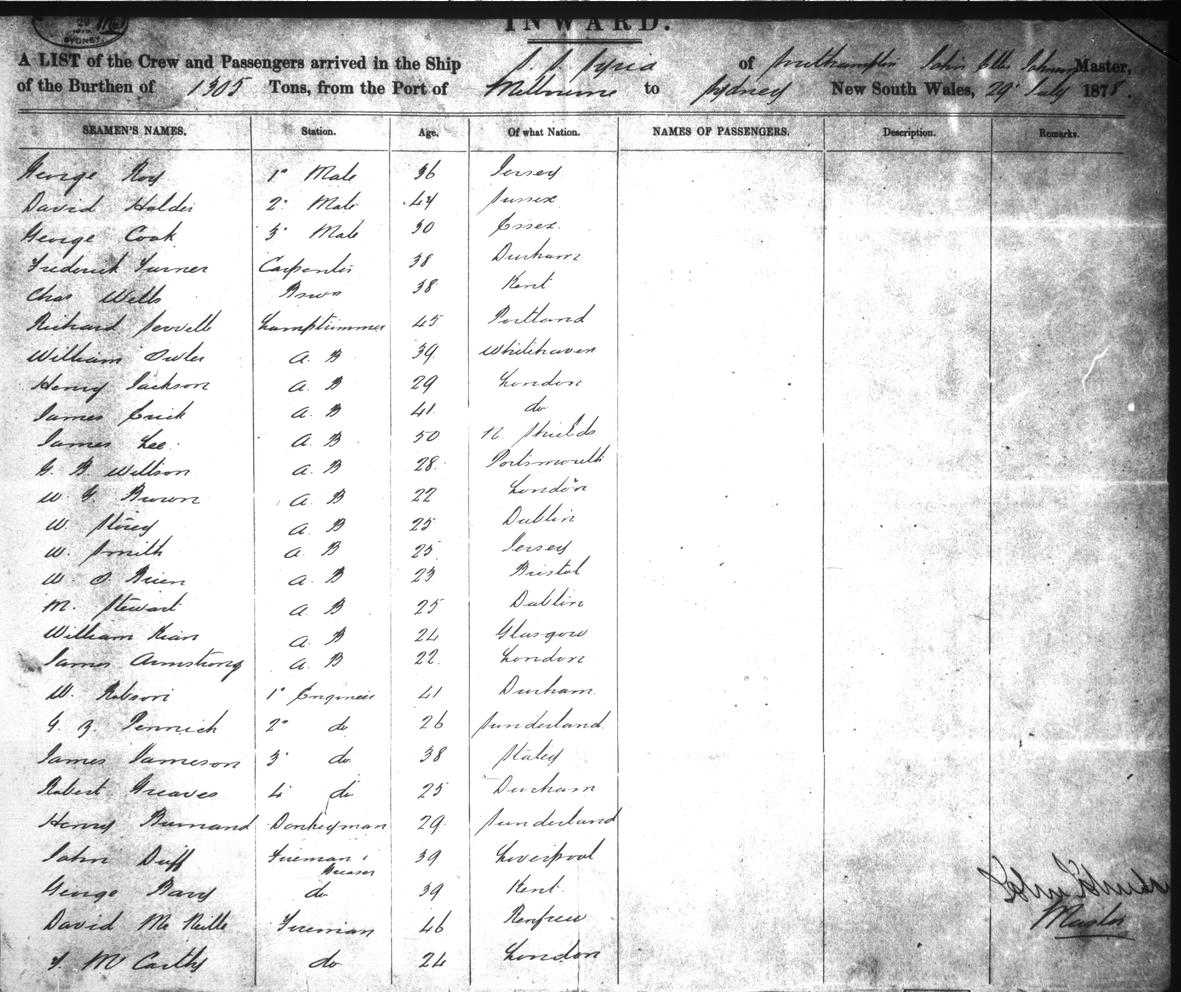 INWARD.
29
SYDNEY
A LIST of the Crew and Passengers arrived in the Ship S. S. Syria of Southampton John Master,
of the Burthen of 1305 Tons, from the Port of Melbourne to Sydney New South Wales, 29 July 1878.
SEAMEN'S NAMES. Station. Age. Of what Nation. NAMES OF PASSENGERS. Description. Remarks.
George Roy 1º Mate 36 Jersey
David Holder 2º Mate 44 Sussex
George Cook 3º Mate 30 Essex
Frederick Turner Carpenter 38 Durham
Chas Wells 38 Kent
Richard Lamptrimmer 45 Portland
William A. B 39 Whitehaven
Henry Jackson A. B 29 London
James A. B 41 do
James Lee A. B 50 N. Shields
G. B. Willson A. B 28 Portsmouth
W. G. Brown A. B 22 London
W. Storey A. B 25 Dublin
W. Smith A. B 25 Jersey
W. O Brien A. B 23 Bristol
M. Stewart A. B 25 Dublin
William Kian A. B 24 Glasgow
James Armstrong A. B 22 London
W. Robson 1º Engineer 41 Durham
G. 2º do 26 Sunderland
James Jameson 3º do 38
Robert Greaves 4 do 25 Durham
Henry Donkeyman 29 Sunderland
John Duff Fireman & Greaser 39 Liverpool
George do 39 Kent
David Mc Fireman 46 Renfrew
Mc Carthy do 24 London
John
Master